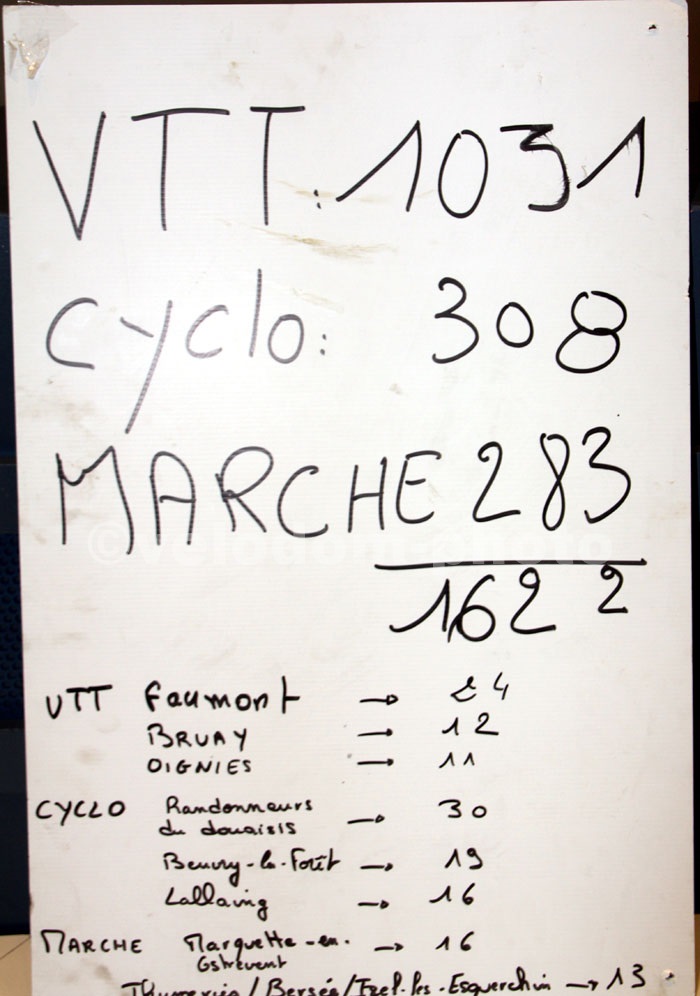 VTT : 1031
Cyclo : 308
MARCHE 283
1622
VTT Faumont → 24
BRUAY → 12
OIGNIES → 11
CYCLO Randonneurs
du douaisis → 30
Beuvry-la-Forêt → 19
Lallaing → 16
MARCHE Marquette-en-
Ostrevent → 16
Thumeries / Bersée / Izel-les-Esquerchin → 13
©velodom-photo